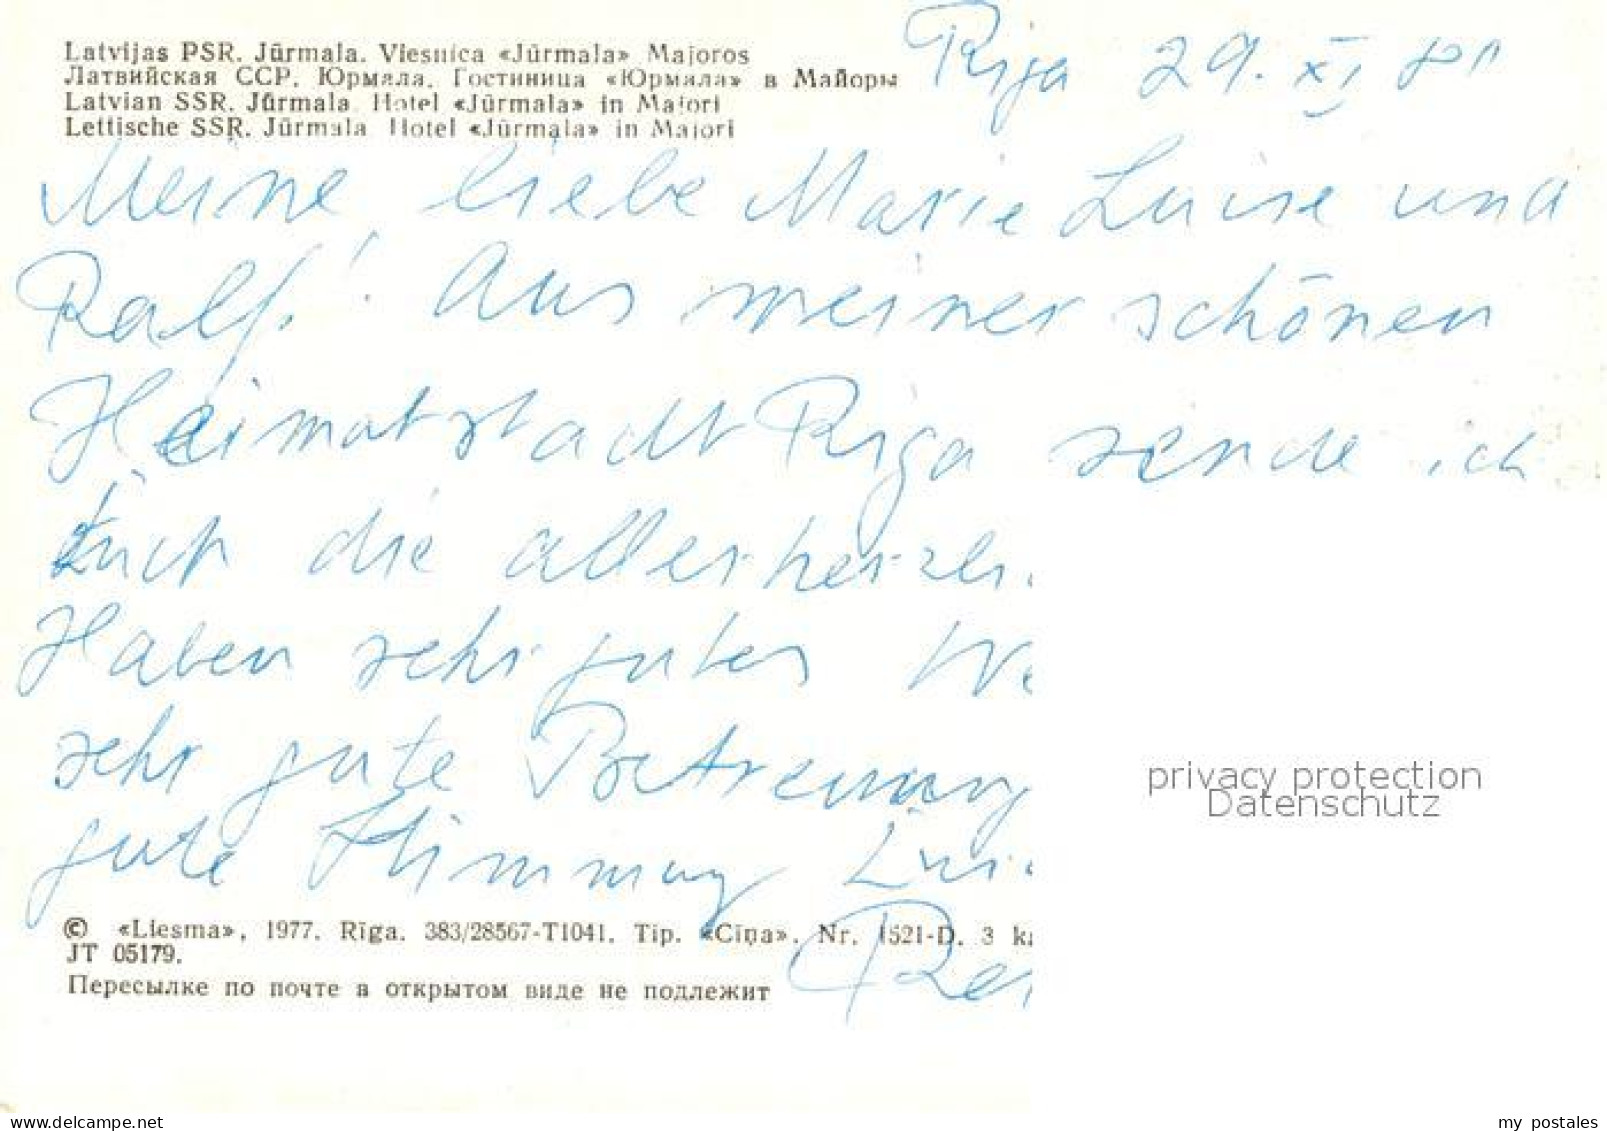 Latvijas PSR. Jūrmala. Viesnīca «Jūrmala» Majoros
Латвийская ССР. Юрмала. Гостиница «Юрмала» в Майори
Latvian SSR. Jūrmala. Hotel «Jūrmala» in Majori
Lettische SSR. Jūrmala. Hotel «Jūrmala» in Majori
Riga 29. XI
Meine liebe Marie Luise und
Ralf! Aus meiner schönen
Heimatstadt Riga sende ich
Euch die allerherzli
Haben sehr gutes We
sehr gute Betreuung
gute Stimmung
© «Liesma», 1977. Rīga. 383/28567-T1041. Tip. «Cīņa». Nr. 1521-D. 3 k
JT 05179.
Пересылке по почте в открытом виде не подлежит
privacy protection
Datenschutz
delcampe.net
my_postales